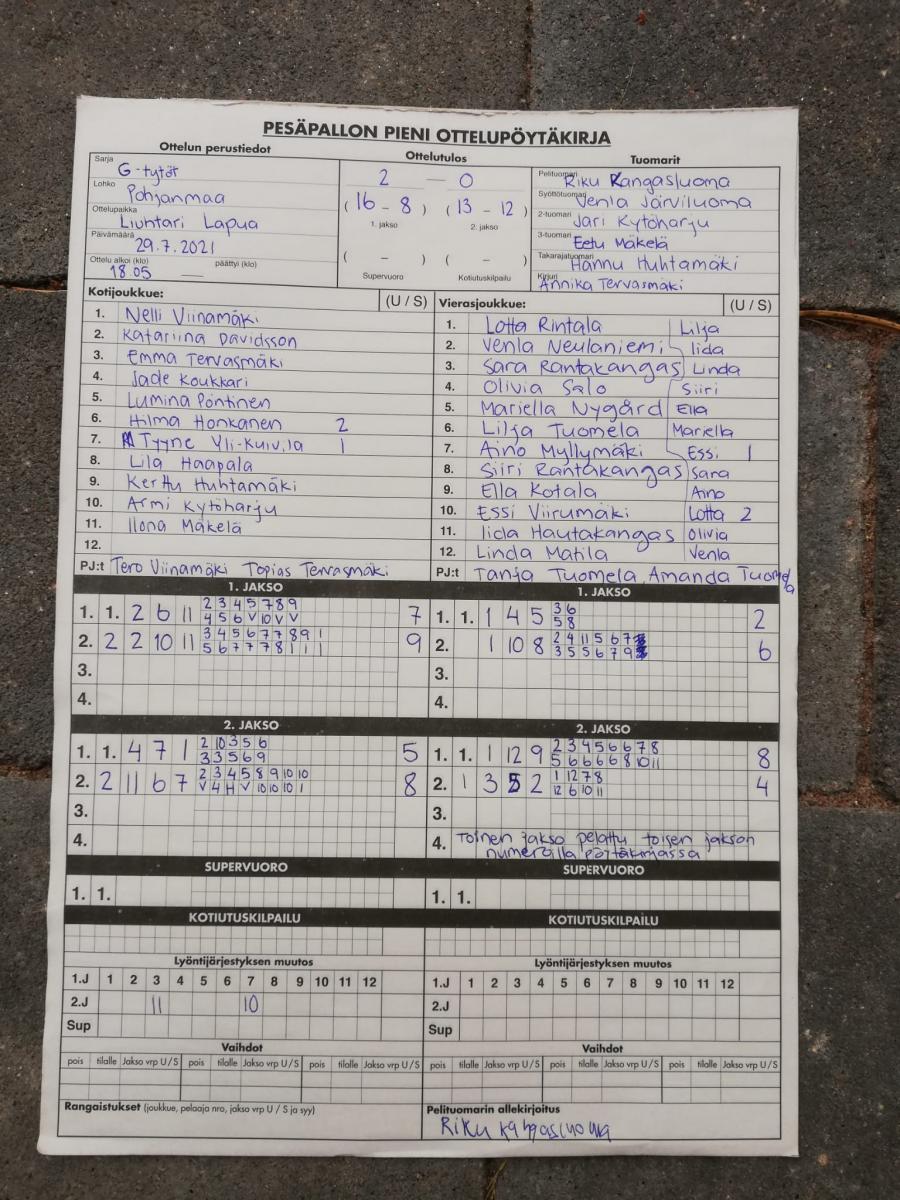 PESÄPALLON PIENI OTTELUPÖYTÄKIRJA
Ottelun perustiedot
Ottelutulos
Tuomarit
Sarja G-tytöt
Lohko Pohjanmaa
Ottelupaikka Liuhtari Lapua
Päivämäärä 29.7.2021
Ottelu alkoi (klo) 18.05 päättyi (klo)
2 – 0
(16 - 8) (13 - 12)
1. jakso 2. jakso
( – ) ( – )
Supervuoro Kotiutuskilpailu
Pelituomari Riku Kangasluoma
Syöttötuomari Venla Järviluoma
2-tuomari Jari Kytöharju
3-tuomari Eetu Mäkelä
Takarajatuomari Hannu Huhtamäki
Kirjuri Annika Tervasmäki
Kotijoukkue: (U / S)
1. Nelli Viinamäki
2. Katariina Davidsson
3. Emma Tervasmäki
4. Jade Koukkari
5. Lumina Pöntinen
6. Hilma Honkanen 2
7. Tyyne Yli-Kuivila 1
8. Lila Haapala
9. Kerttu Huhtamäki
10. Armi Kytöharju
11. Ilona Mäkelä
12.
PJ:t Tero Viinamäki Topias Tervasmäki
Vierasjoukkue: (U / S)
1. Lotta Rintala Lilja
2. Venla Neulaniemi Iida
3. Sara Rantakangas Linda
4. Olivia Salo Siiri
5. Mariella Nygård Ella
6. Lilja Tuomela Mariella
7. Aino Myllymäki Essi 1
8. Siiri Rantakangas Sara
9. Ella Kotala Aino
10. Essi Viirumäki Lotta 2
11. Iida Hautakangas Olivia
12. Linda Matila Venla
PJ:t Tanja Tuomela Amanda Tuomela
1. JAKSO
1. 1. 2 6 11 2 3 4 5 7 8 9 7
4 5 6 V 10 V V
2. 2 2 10 11 3 4 5 6 7 7 8 9 1 9
5 6 7 7 7 8 1 1 1
3.
4.
1. JAKSO
1. 1. 1 4 5 3 6 2
5 8
2. 1 10 8 2 4 11 5 6 7 6
3 5 5 6 7 9
3.
4.
2. JAKSO
1. 1. 4 7 1 2 10 3 5 6 5
3 3 5 6 9
2. 2 11 6 7 2 3 4 5 8 9 10 10 8
V 4 H V 10 10 10 1
3.
4.
2. JAKSO
1. 1. 1 12 9 2 3 4 5 6 6 7 8 8
5 6 6 6 6 8 10 11
2. 1 3 5 2 1 12 7 8 4
12 6 10 11
3.
4. Toinen jakso pelattu toisen jakson
numeroilla pöytäkirjassa
SUPERVUORO
1. 1.
SUPERVUORO
1. 1.
KOTIUTUSKILPAILU
KOTIUTUSKILPAILU
Lyöntijärjestyksen muutos
1.J 1 2 3 4 5 6 7 8 9 10 11 12
2.J 11 10
Sup
Lyöntijärjestyksen muutos
1.J 1 2 3 4 5 6 7 8 9 10 11 12
2.J
Sup
Vaihdot
pois tilalle Jakso vrp U / S pois tilalle Jakso vrp U / S pois tilalle Jakso vrp U / S
Vaihdot
pois tilalle Jakso vrp U / S pois tilalle Jakso vrp U / S pois tilalle Jakso vrp U / S
Rangaistukset (joukkue, pelaaja nro, jakso vrp U / S ja syy)
Pelituomarin allekirjoitus
Riku Kangasluoma